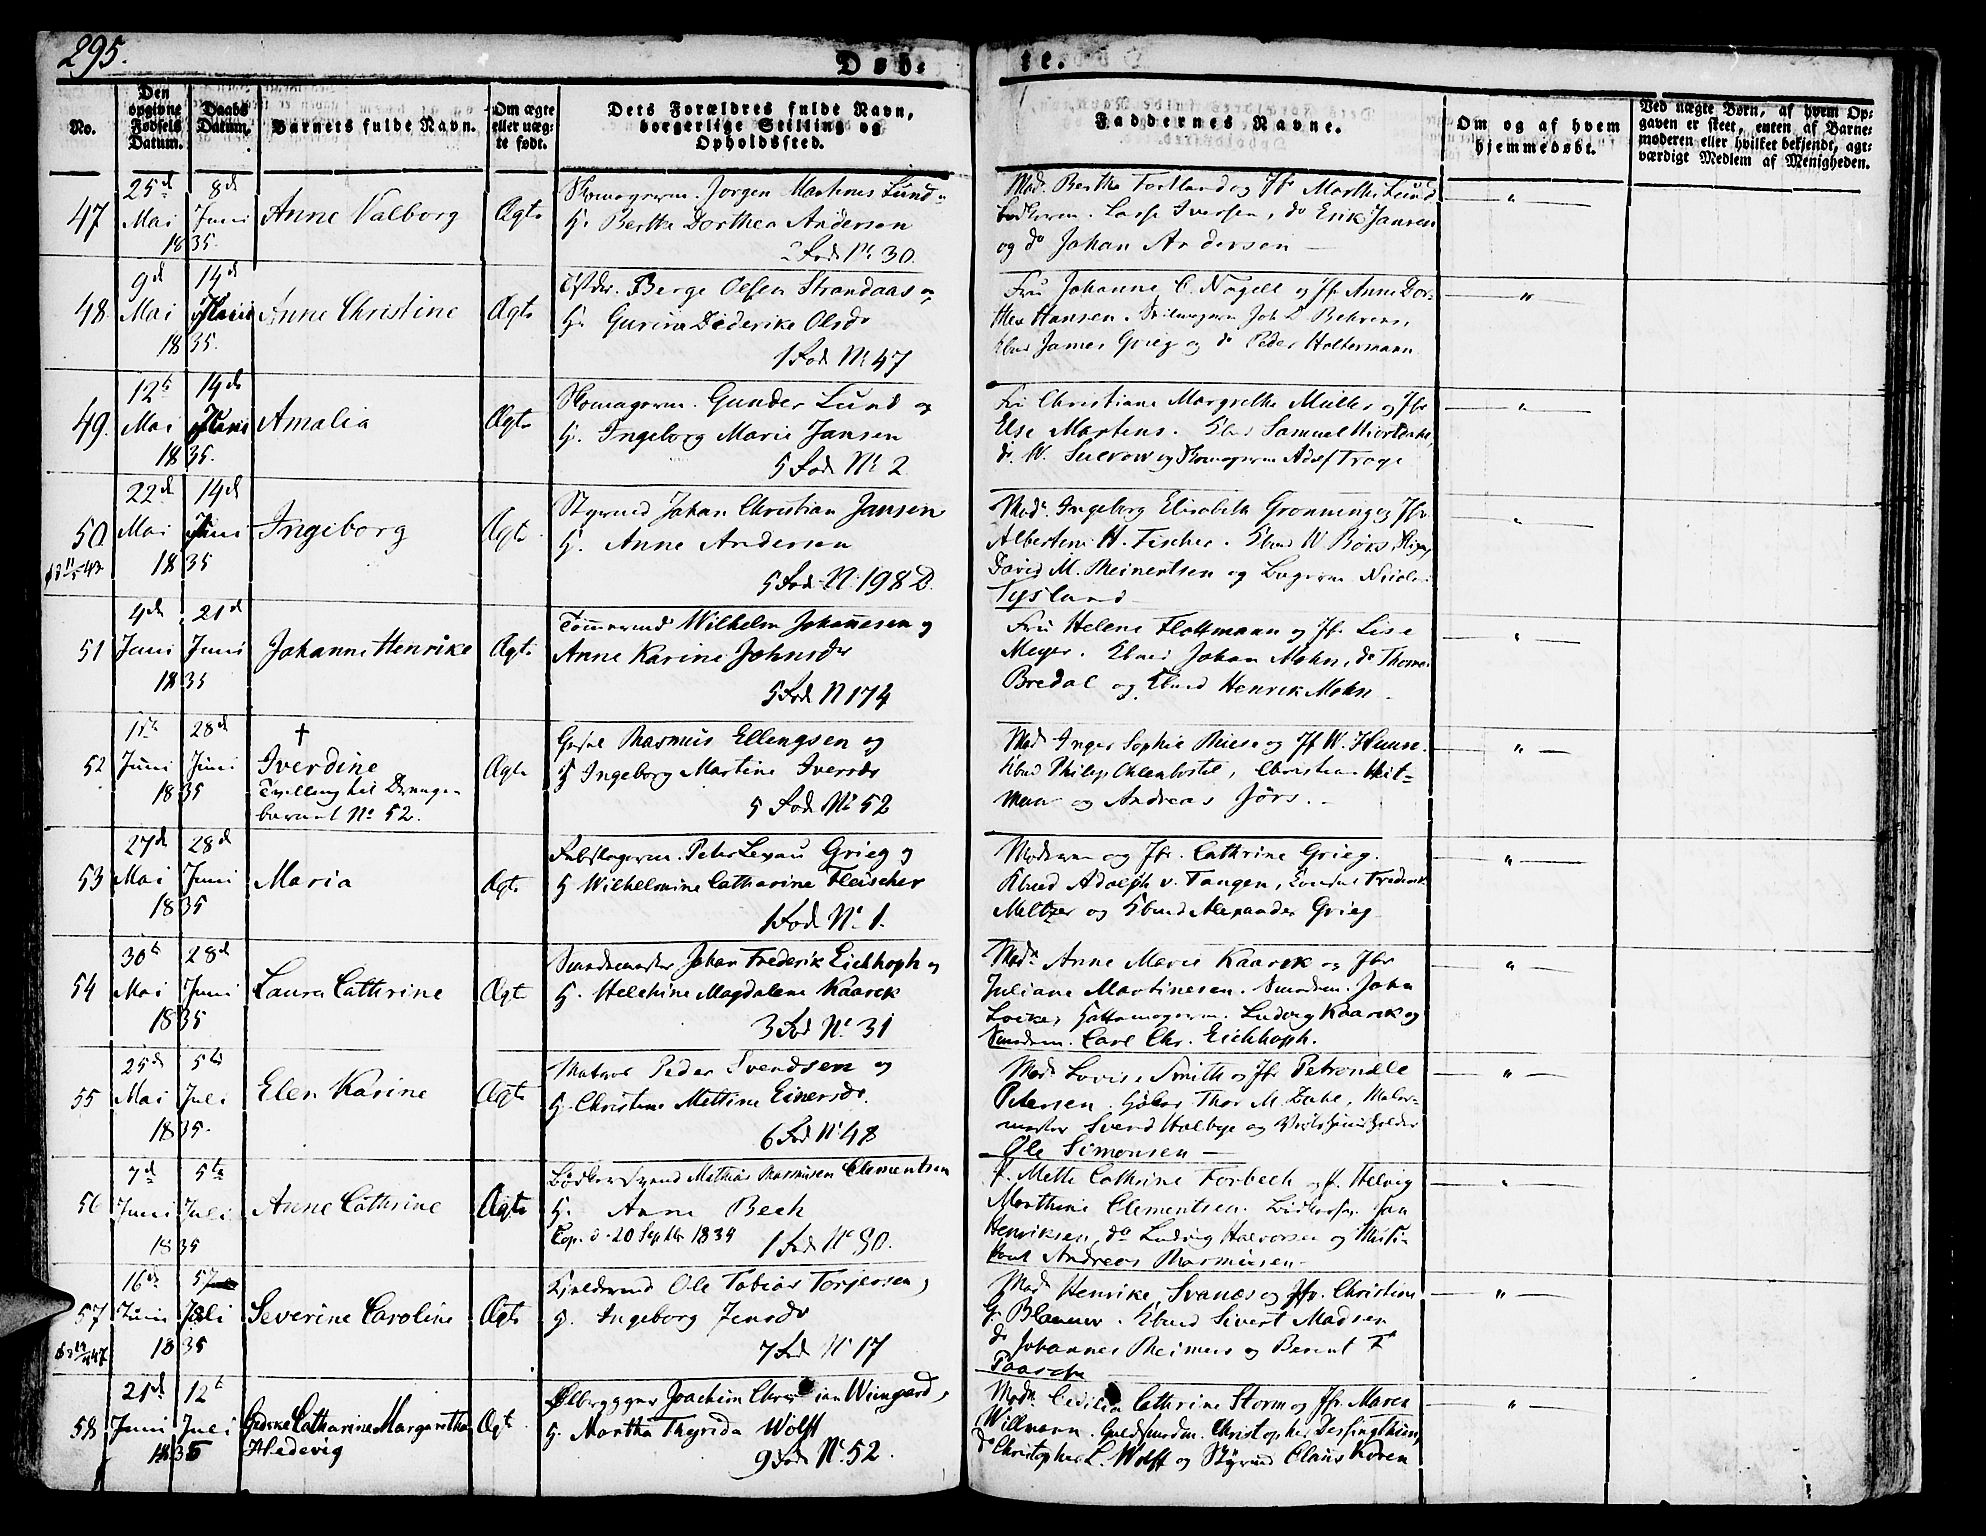 295.
Døb-
te.
No.
Den opgivne Fødsels Datum.
Daabs Datum.
Barnets fulde Navn.
Om ægte eller uæg-
te født.
Dets Forældres fulde Navn,
borgerlige Stilling og
Opholdssted.
Faddernes Navne.
Om og af hvem
hjemmedøbt.
Ved uægte Børn, af hvem Op-
gaven er skeet, enten af Barne-
moderen eller hvilket bekjendt, agt-
værdigt Medlem af Menigheden.
47
25d Mai 1835
8d Juni
Anne Valborg
Ægte
Skomagerm. Jørgen Martinus Lund
H. Berthe Dorthea Andersen
2 Rod Nr 30.
Mad. Berthe Tortland og Jfr Marthe Lund
Lasse Iversen, do Erik Jansen
og do Johan Andersen
"
48.
9d Mai 1835.
14d Juni
Anne Christine
Ægte
Berge Olsen Strandaas og
H. Gurine Diderike Olsdr
1 Rod Nr 47
Fru Johanne C. Nagell og Jfr Anne Dor-
thea Hansen. Joh D Behrens,
Kbmd James Grieg og do Peder Holtermann
"
49.
12te Mai 1835.
14de Juni
Amalia
Ægte
Skomagerm. Gunder Lund og
H. Ingeborg Marie Jansen
5 Rod Nr 2
Fru Christiane Margrethe Müller og Jfr
Else Martens. Kbmd Samuel Hiortdahl,
do W. Suerow og Skomagerm Adolf Trage
"
50.
22d Mai 1835
14d Juni
Ingeborg
Ægte
Styrmd Johan Christian Jansen
H. Anne Andersen
5 Rod N. 198 D.
Mad. Ingeborg Elisabeth Grønning og Jfr
Albertine H. Fischer. Kbmd W Børs,
David M. Meinertsen og Bagerm Nicolai
Tysland
"
51
4de Juni 1835
21d Juni
Johanne Henrike
Ægte
Tømmermd Wilhelm Johannesen og
Anne Karine Johnsdr
5 Rod N 174
Fru Helene Flottmann og Jfr Lise
Meyer. Kbmd Johan Mohn, do Thomas
Bredal og Kbmd Henrik Mohn.
"
52
Juni 1835
28d Juni
†
Iverdine
Tvilling til Drenge-
barnet No 52.
Ægte
Rasmus Ellengsen og
H Ingeborg Martine Iversdr
5 Rod Nr 52
Mad Inger Sophie Riese og Jf W.
Kbmd Philip Ohlenbostel, Christian Heit-
mann og Andreas Jørs.
"
53
27d Mai 1835
28d Juni
Maria
Ægte
Peter Lexau Grieg og
H Wilhelmine Catharine Fleischer
1 Rod No 1.
Moderen og Jfr. Cathrine Grieg.
Kbmd Adolph v. Tangen, Frederik
Meltzer og Kbmd Alexander Grieg
"
54
30te Mai 1835
28d Juni
Laura Cathrine
Ægte
Smedemester Johan Frederik Eichhoph og
H. Helekine Magdalene Kaarck
3 Rod No 31
Mad. Anne Marie Kaarck og Jfr
Juliane Martinesen. Smedem. John
Locke, Hattemagerm. Ludvig Kaarck og
Smedem. Carl Chr. Eichhoph.
"
55
25d Mai 1835.
5te Juli
Elen Karine
Ægte
Matros Peder Svendsen og
H. Christine Mettine Einersdr.
6 Rod No 48
Mad. Lovise Smith og Jfr Petronelle
Petersen. Thor M. Maler-
mester Svend Halbye og
Ole Simonsen
"
56
7d Juni 1835
5te Juli
Anne Cathrine
Ægte
Bødkersvend Mathias Rasmusen Clementsen
H. Anne Bech
Cop. d. 20 Septbr 1834 1 Rod No 90.
P. Mette Cathrine Forbech og P. Helvig
Marthine Clementsen. Jan
Henriksen, do Ludvig Halvorsen og
Andreas Rasmusen
"
57
16de Juni 1835
5te Juli
Severine Caroline
Ægte
Ole Tobias Torjersen,
H. Ingeborg Jensdr
7 Rod No 17
Mad. Henrike Svanøs og Jfr. Christine
G. Blauuw. Kbmd Sivert Madsen
do Johannes Reimers og Berent
"
58
21de Juni 1835
12te Juli
Gidske Catharine Margaretha
Hedevig
Ægt
Ølbrygger Joachim Christian Wiingard,
H. Martha Thyrida Wolff
9 Rod No. 52.
Mad. Cecilia Cathrine Storm og Jfr. Maren
Willmann. Guldsmedm. Christopher
do Christopher L. Wolff og Styrmd Claus Koren
"